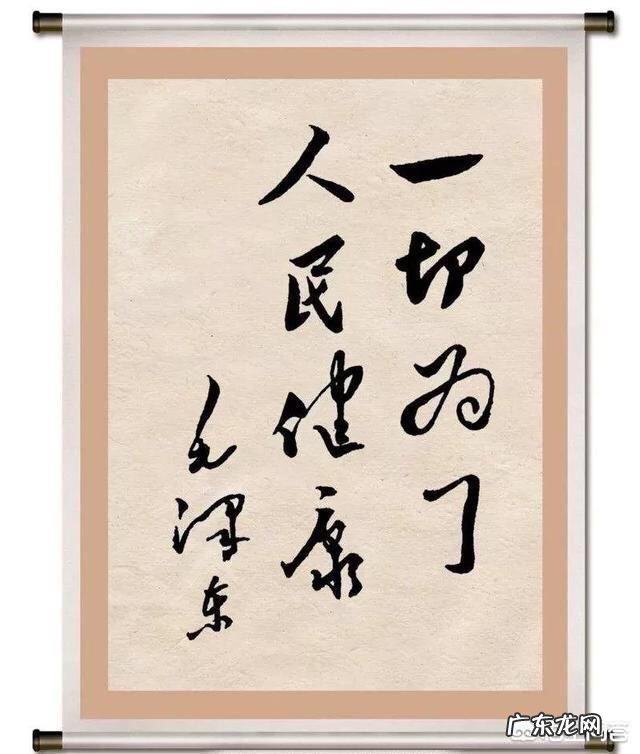 一切为了
人民健康
毛泽东
广东龙网